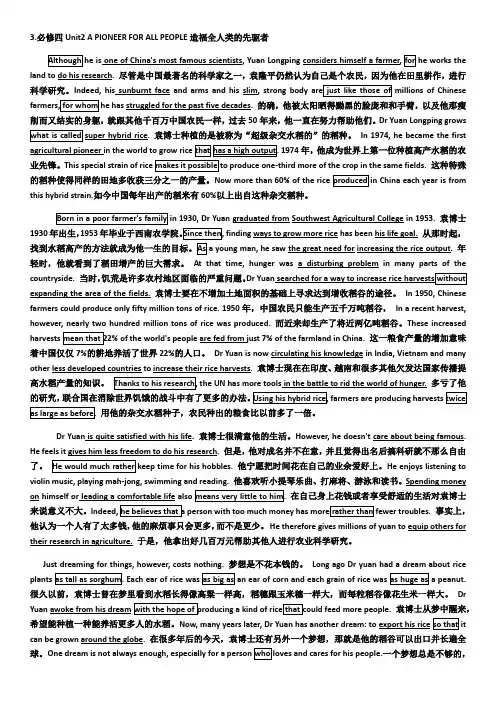 3.必修四 Unit2 A PIONEER FOR ALL PEOPLE 造福全人类的先驱者
Although he is one of China's most famous scientists, Yuan Longping considers himself a farmer, for he works the
land to do his research. 尽管是中国最著名的科学家之一，袁隆平仍然认为自己是个农民，因为他在田里耕作，进行
科学研究。Indeed, his sunburnt face and arms and his slim, strong body are just like those of millions of Chinese
farmers, for whom he has struggled for the past five decades. 的确，他被太阳晒得黝黑的脸庞和和手臂，以及他那瘦
削而又结实的身躯，就跟其他千百万中国农民一样，过去 50 年来，他一直在努力帮助他们。Dr Yuan Longping grows
what is called super hybrid rice. 袁博士种植的是被称为“超级杂交水稻的”的稻种。 In 1974, he became the first
agricultural pioneer in the world to grow rice that has a high output. 1974 年，他成为世界上第一位种植高产水稻的农
业先锋。This special strain of rice makes it possible to produce one-third more of the crop in the same fields. 这种特殊
的稻种使得同样的田地多收获三分之一的产量。Now more than 60% of the rice produced in China each year is from
this hybrid strain.如今中国每年出产的稻米有 60%以上出自这种杂交稻种。
Born in a poor farmer's family in 1930, Dr Yuan graduated from Southwest Agricultural College in 1953. 袁博士
1930 年出生，1953 年毕业于西南农学院。Since then, finding ways to grow more rice has been his life goal. 从那时起，
找到水稻高产的方法就成为他一生的目标。As a young man, he saw the great need for increasing the rice output. 年
轻时，他就看到了稻田增产的巨大需求。 At that time, hunger was a disturbing problem in many parts of the
countryside. 当时，饥荒是许多农村地区面临的严重问题。Dr Yuan searched for a way to increase rice harvests without
expanding the area of the fields. 袁博士要在不增加土地面积的基础上寻求达到增收稻谷的途径。 In 1950, Chinese
farmers could produce only fifty million tons of rice. 1950 年，中国农民只能生产五千万吨稻谷， In a recent harvest,
however, nearly two hundred million tons of rice was produced. 而近来却生产了将近两亿吨稻谷。These increased
harvests mean that 22% of the world's people are fed from just 7% of the farmland in China. 这一粮食产量的增加意味
着中国仅仅 7%的耕地养活了世界 22%的人口。 Dr Yuan is now circulating his knowledge in India, Vietnam and many
other less developed countries to increase their rice harvests. 袁博士现在在印度、越南和很多其他欠发达国家传播提
高水稻产量的知识。 Thanks to his research, the UN has more tools in the battle to rid the world of hunger. 多亏了他
的研究，联合国在消除世界饥饿的战斗中有了更多的办法。Using his hybrid rice, farmers are producing harvests twice
as large as before. 用他的杂交水稻种子，农民种出的粮食比以前多了一倍。
Dr Yuan is quite satisfied with his life. 袁博士很满意他的生活。However, he doesn't care about being famous.
He feels it gives him less freedom to do his research. 但是，他对成名并不在意，并且觉得出名后搞科研就不那么自由
了。 He would much rather keep time for his hobbies. 他宁愿把时间花在自己的业余爱好上。He enjoys listening to
violin music, playing mah-jong, swimming and reading. 他喜欢听小提琴乐曲、打麻将、游泳和读书。Spending money
on himself or leading a comfortable life also means very little to him. 在自己身上花钱或者享受舒适的生活对袁博士
来说意义不大。Indeed, he believes that a person with too much money has more rather than fewer troubles. 事实上，
他认为一个人有了太多钱，他的麻烦事只会更多，而不是更少。He therefore gives millions of yuan to equip others for
their research in agriculture. 于是，他拿出好几百万元帮助其他人进行农业科学研究。
Just dreaming for things, however, costs nothing. 梦想是不花本钱的。 Long ago Dr yuan had a dream about rice
plants as tall as sorghum. Each ear of rice was as big as an ear of corn and each grain of rice was as huge as a peanut.
很久以前，袁博士曾在梦里看到水稻长得像高粱一样高，稻穗跟玉米穗一样大，而每粒稻谷像花生米一样大。 Dr
Yuan awoke from his dream with the hope of producing a kind of rice that could feed more people. 袁博士从梦中醒来，
希望能种植一种能养活更多人的水稻。Now, many years later, Dr Yuan has another dream: to export his rice so that it
can be grown around the globe. 在很多年后的今天，袁博士还有另外一个梦想，那就是他的稻谷可以出口并长遍全
球。One dream is not always enough, especially for a person who loves and cares for his people.一个梦想总是不够的，